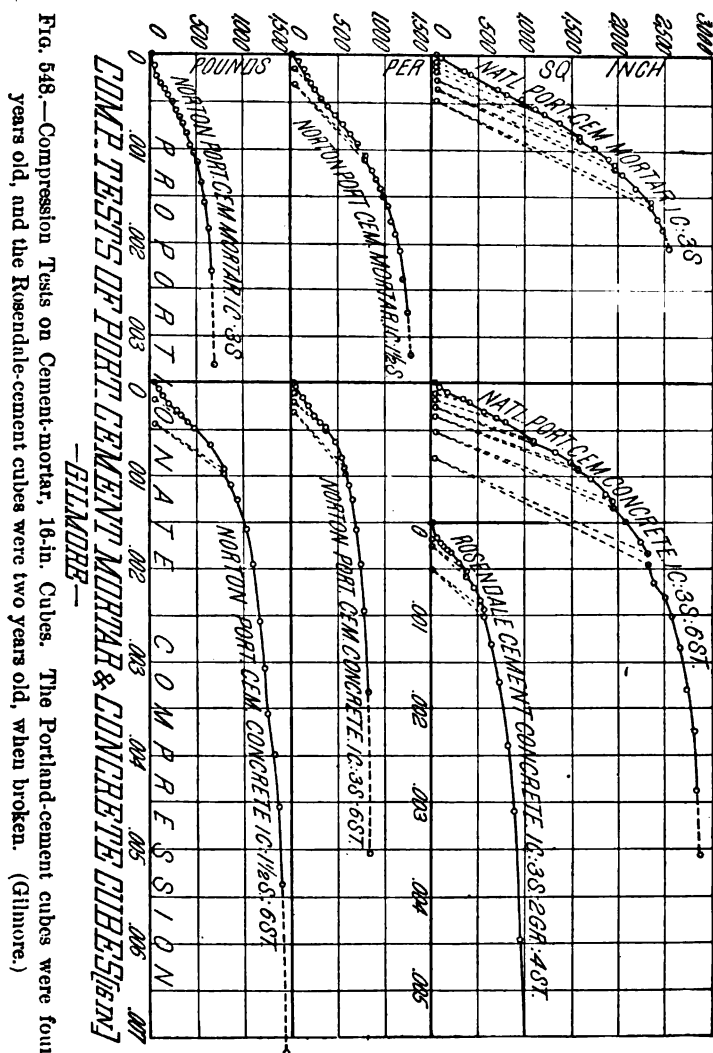 3000
2500
2000
1500
1000
500
0
1500
1000
500
0
1500
1000
500
0
POUNDS PER SQ INCH
NAT'L PORT. CEM MORTAR 1C:3S
NORTON PORT CEM MORTAR 1C:1½S
NORTON PORT CEM MORTAR 1C:3S
NAT'L PORT. CEM CONCRETE 1C:3S:6ST.
ROSENDALE CEMENT CONCRETE 1C:3S:2GR:4ST.
0 .001 .002 .003 .004 .005
NORTON PORT. CEM CONCRETE 1C:3S:6ST.
NORTON PORT. CEM CONCRETE 1C:1½S:6ST.
PROPORTIONATE COMPRESSION
0 .001 .002 .003 0 .001 .002 .003 .004 .005 .006 .007
COMP. TESTS OF PORT. CEMENT MORTAR & CONCRETE CUBES [6 IN]
—GILMORE—
FIG. 548.—Compression Tests on Cement-mortar, 16-in. Cubes. The Portland-cement cubes were four
years old, and the Rosendale-cement cubes were two years old, when broken. (Gilmore.)